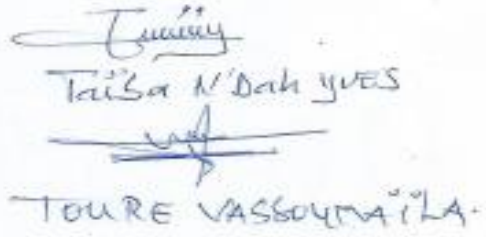 Taïba N'Dah YVES
TOURE VASSOUMAÏLA.